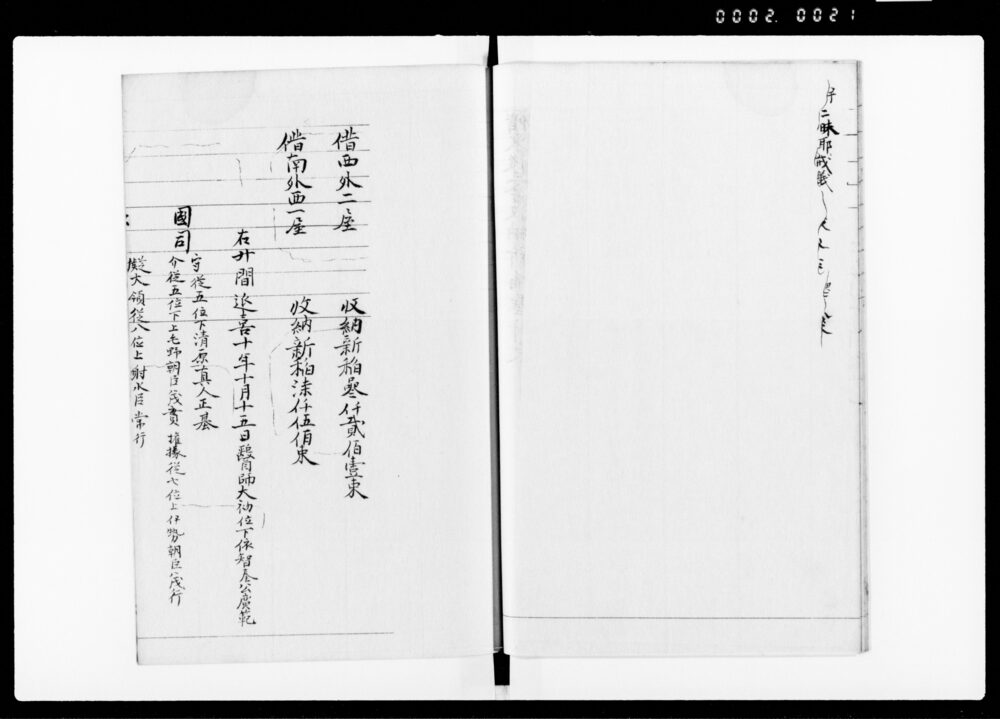 0002. 0021
二昧耶戒義
借西外二屋 收納新稲參仟貳佰壹束
借南外西一屋 收納新稲漆仟伍佰束
右廾間延喜十年十月十五日醫師大初位下依智秦公廣範
國司
守從五位下清原真人正基
介從五位下上毛野朝臣茂實 權掾從七位上伊勢朝臣茂行
擬大領從八位上射水臣常行